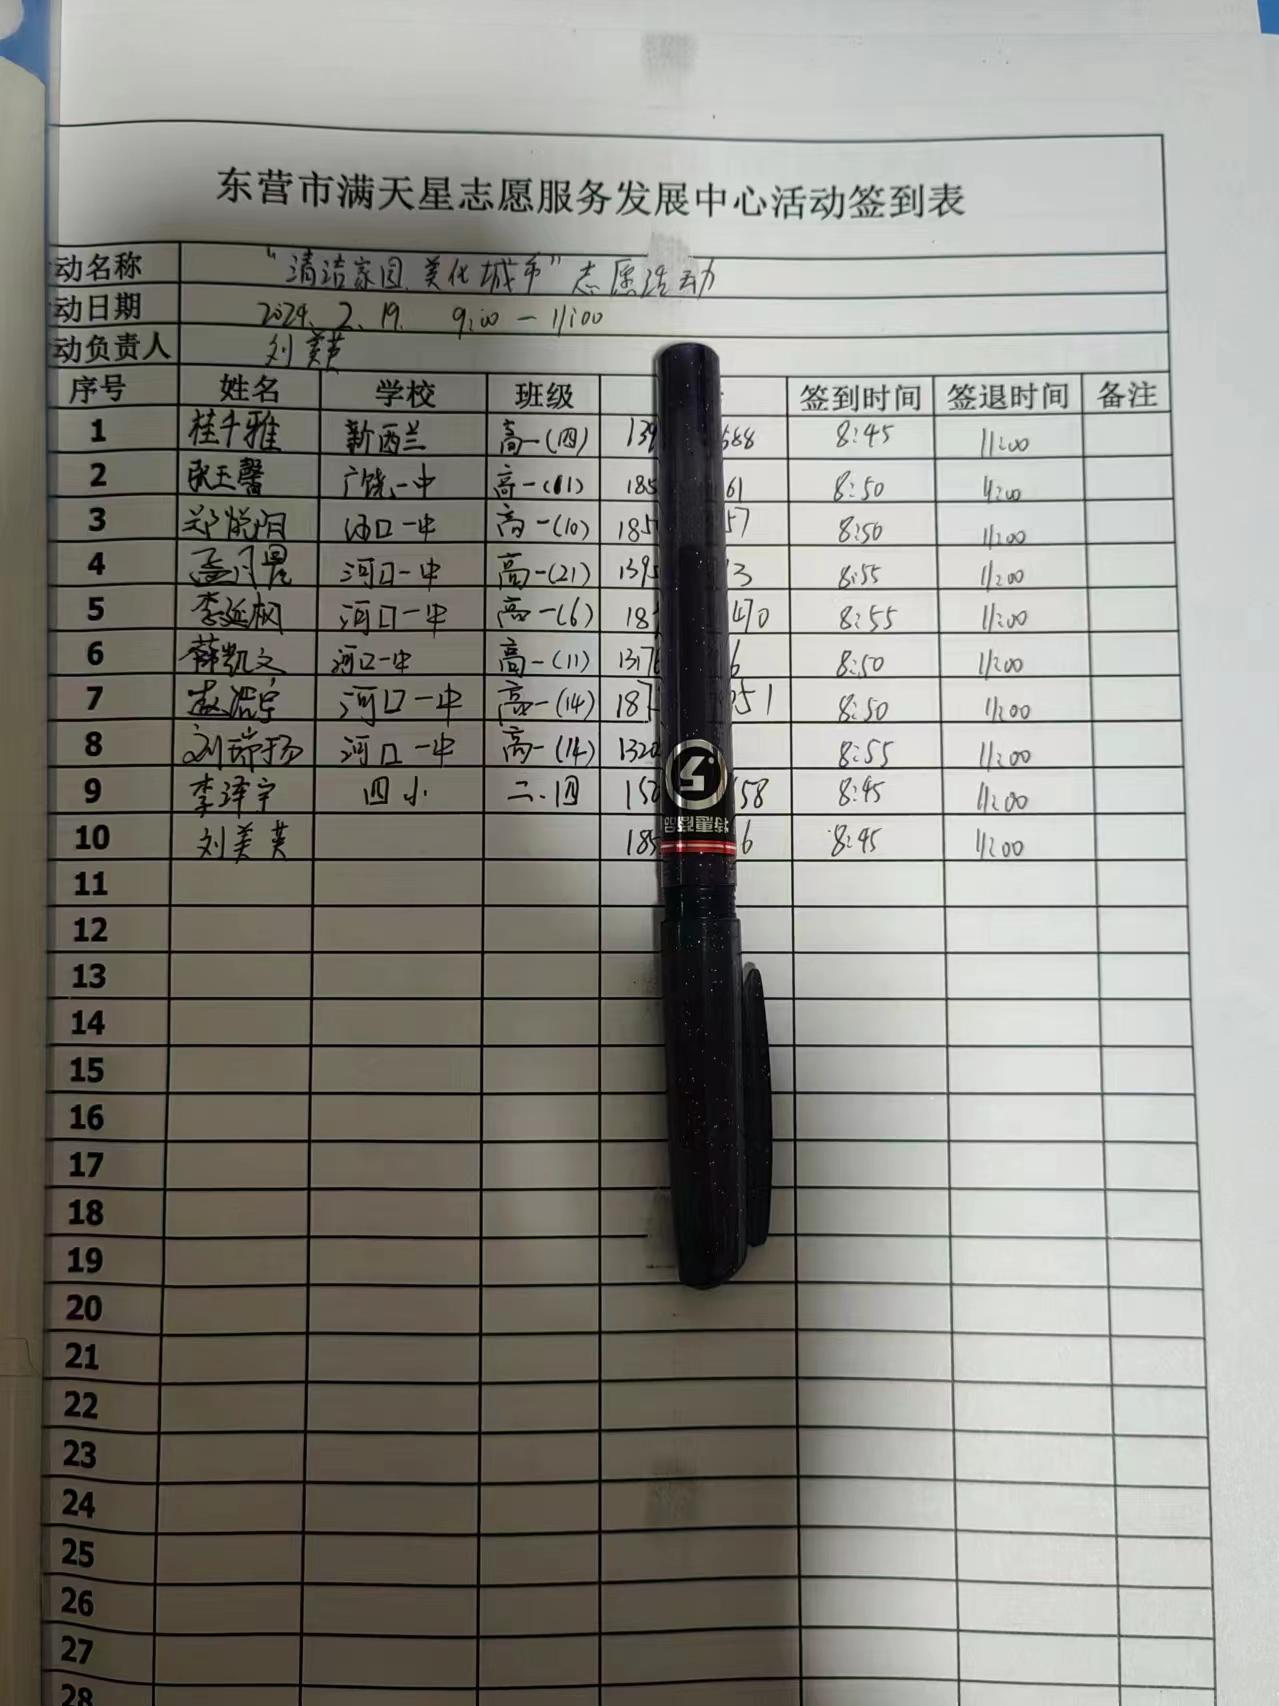 东营市满天星志愿服务发展中心活动签到表
动名称 “清洁家园 美化城市”志愿活动
动日期 2024. 2. 19. 9:00 — 11:00
动负责人 刘美英
序号 姓名 学校 班级 签到时间 签退时间 备注
1 桂千雅 新西兰 高一(四) 139 588 8:45 11:00
2 张玉馨 广饶一中 高一(11) 185 61 8:50 11:00
3 郑悦阳 河口一中 高一(10) 185 57 8:50 11:00
4 孟 河口一中 高一(21) 1395 3 8:55 11:00
5 李延枫 河口一中 高一(6) 18 470 8:55 11:00
6 薛凯文 河口一中 高一(11) 1317 6 8:50 11:00
7 赵浩宇 河口一中 高一(14) 187 051 8:50 11:00
8 刘瑞扬 河口一中 高一(14) 1320 8:55 11:00
9 李泽宇 四小 二.四 150 58 8:45 11:00
10 刘美英 185 6 8:45 11:00
11
12
13
14
15
16
17
18
19
20
21
22
23
24
25
26
27
28